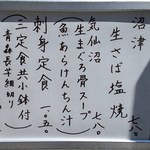 沼津
生さば塩焼
七八〇
気仙沼
生まぐろ骨スープ
(魚あらけんちん汁)
七八〇
刺身定食
一、〇五〇
(三定食共小鉢付)
青森長芋細切り